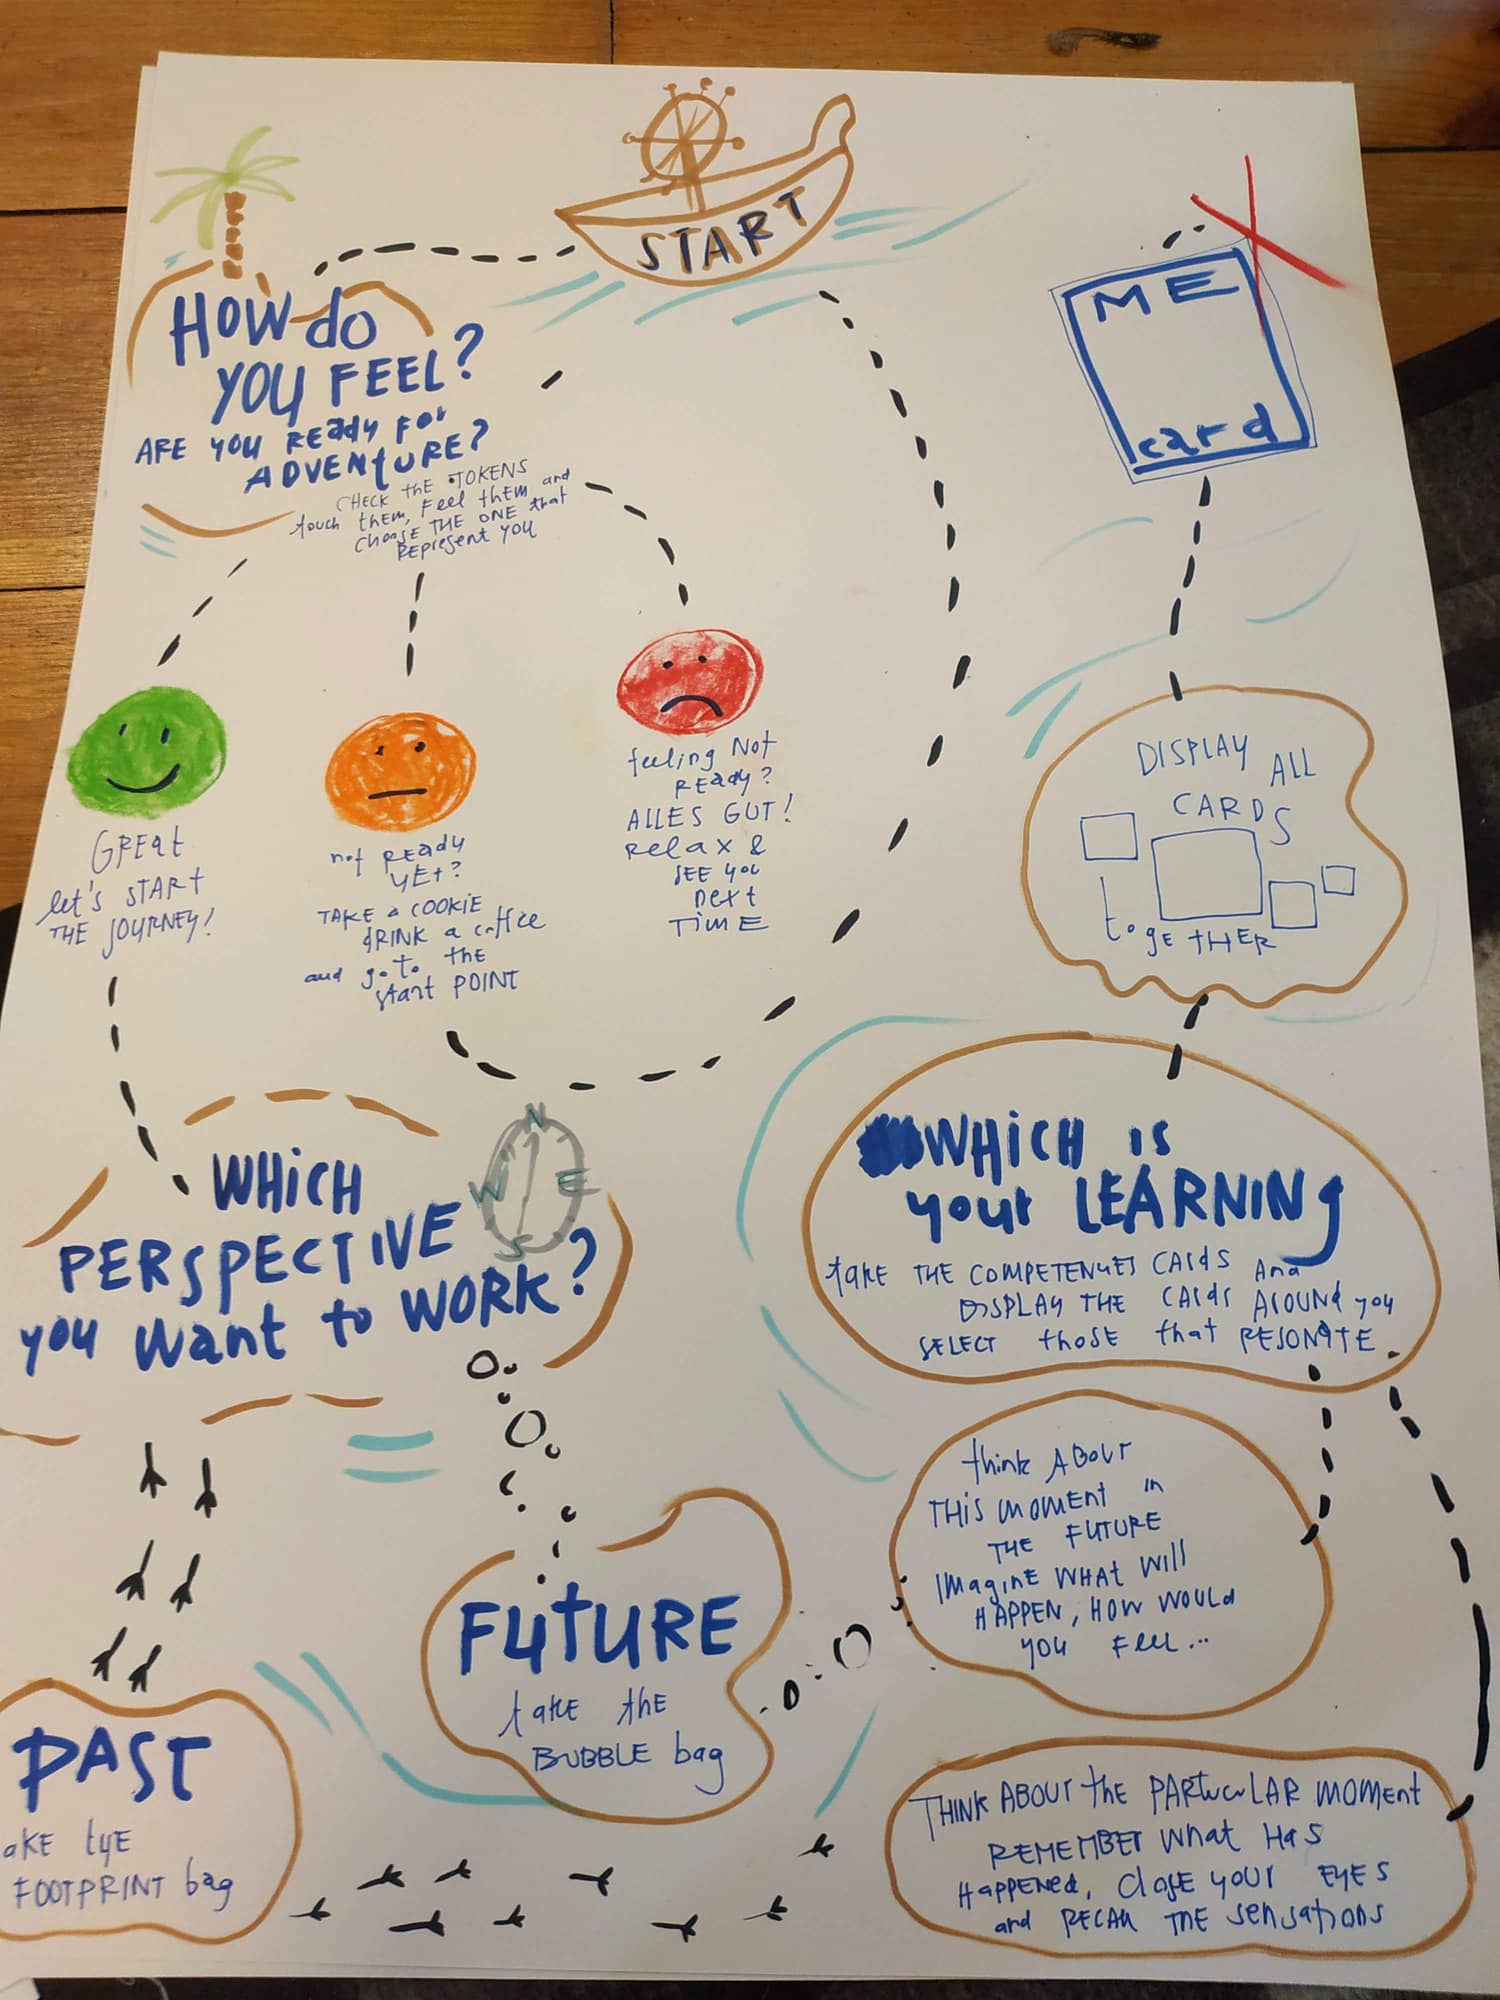 START
HOW do
YOU FEEL?
ARE YOU READY FOR
ADVENTURE?
CHECK THE TOKENS
touch them, Feel them and
choose THE ONE that
REPresent YOU
GREAt
let's START
THE JOURNEY!
not READY
YET?
TAKE a COOKIE
dRINK a coffee
and go to the
start POINT
feeling NOT
READY?
ALLES GUT!
Relax &
SEE YOU
next
TIME
WHICH
PERSPECTIVE
you want to WORK?
N
W E
S
PAST
AKE tHE
FOOTPRINT bag
FUTURE
take the
BUBBLE bag
ME
card
DISPLAY ALL
CARDS
toGETHER
WHICH is
your LEARNING
take THE COMPETENCES CARds And
DISPLAY THE CARds AROUND you
SELECT those that RESONATE
think ABOUT
THIS MOMENT in
THE FUTURE
IMagINE WHAT WIll
HAPPEN, HOW WOULd
YOU FEEL...
THINK ABOUT the PARticuLAR MOMENT
REMEMBER What HAS
HAPPENed, Close YOUR EYES
and RECALL THE SENSAtIONS